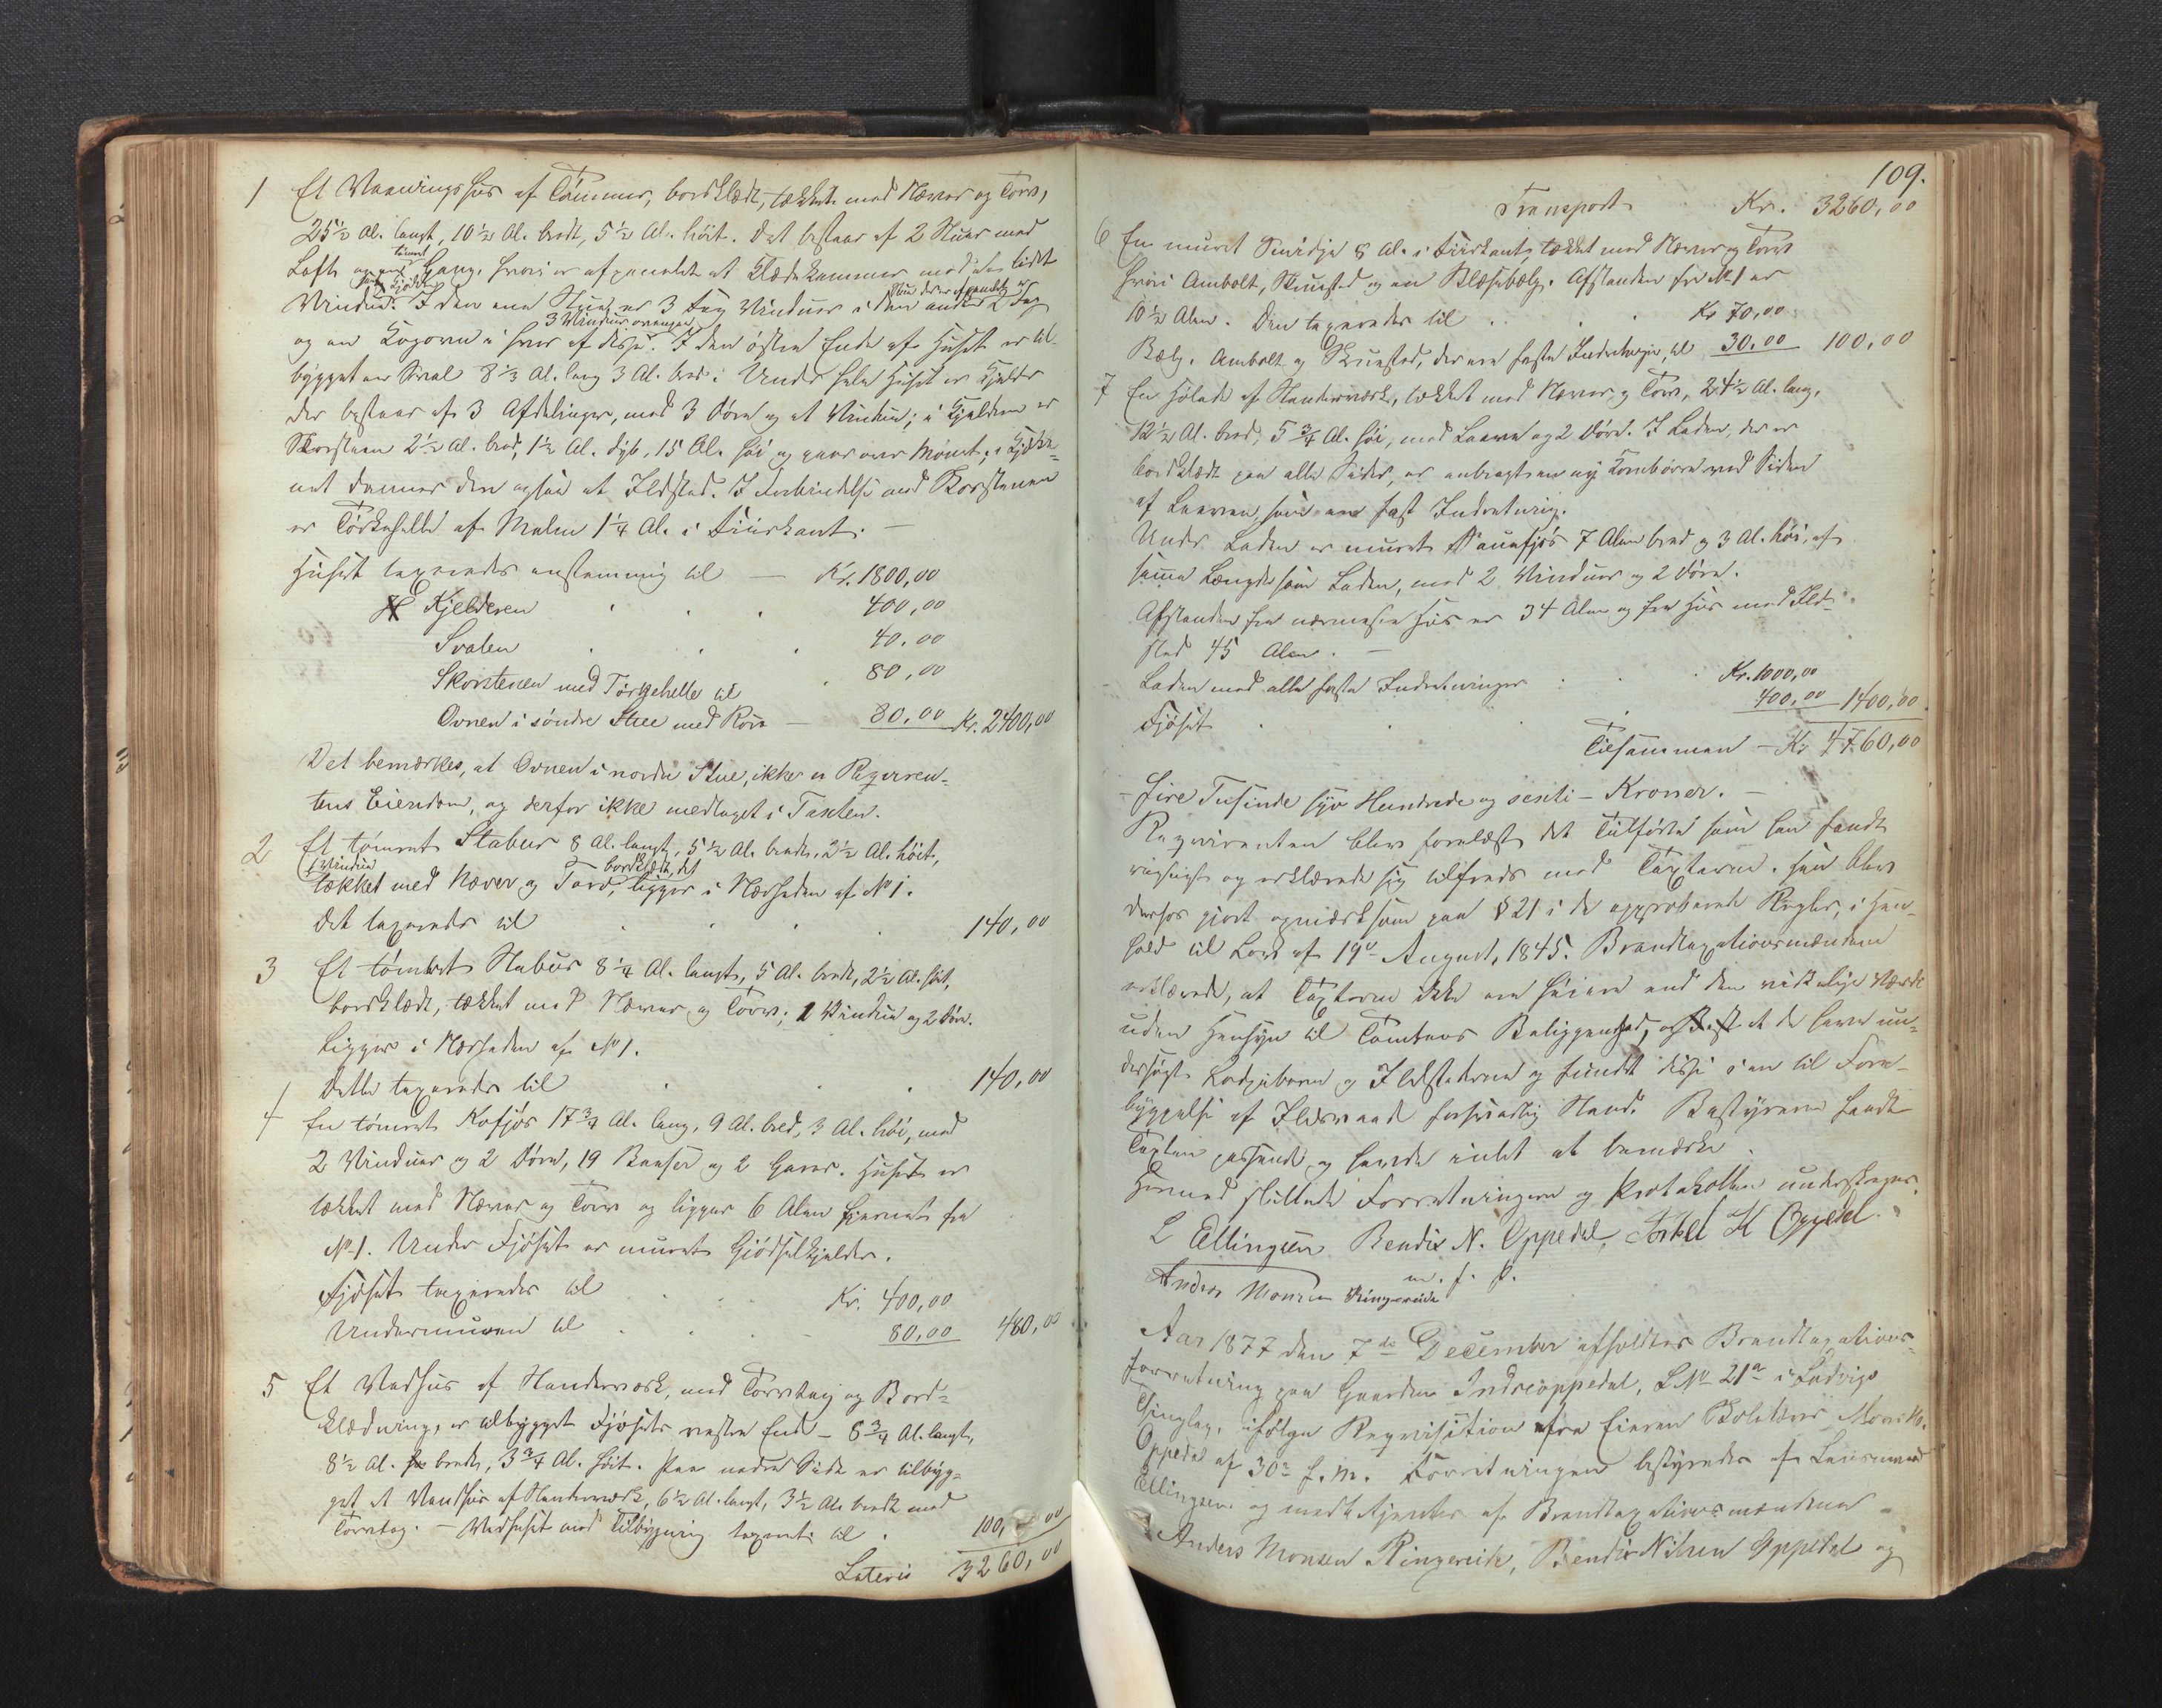 1 Et Vaaningshus af Tømmer, bordklædt, tækket med Næver og Torv,
25½ Al. langt, 10½ Al. bredt, 5½ Al. høit. Det bestaar af 2 Stuer med
Loft og en tømret Gang, hvori er afpanelet et Klædekammer med et lidet
Vindue. I den ene Stue er 3 Fag Vinduer i den anden 2 Fag
3 Vinduer ovenpaa
og en Kogovn i hver af disse. I den østre Ende af Huset er til-
bygget en Sval 8⅓ Al. lang 3 Al. bred. Under hele Huset er Kjelder
der bestaar af 3 Afdelinger, med 3 Døre og et Vindue; i Kjelderen er
Skorsteen 2½ Al. bred, 1½ Al. dyb, 15 Al. høi og gaar over Mønet; i Kjøkke-
net danner den ogsaa et Ildsted. I Forbindelse med Skorstenen
er Tørkehelle af Malm 1¼ Al. i Fiirkant. —
Huset taxeredes enstemmig til — Kr. 1800,00
Kjelderen 400,00
Svalen 40,00
Skorstenen med Tørkehelle til 80,00
Ovnen i søndre Stue med Rør — 80,00 Kr. 2400,00
Det bemærkes, at Ovnen i nordre Stue, ikke er Reqviren-
tens Eiendom, og derfor ikke medtaget i Taxten.
2 Et tømret Stabur 8 Al. langt, 5½ Al. bredt, 2½ Al. høit,
1 Vindue bordklædt, det
tækket med Næver og Torv, ligger i Nærheden af No 1.
Det taxeredes til 140,00
3 Et tømret Stabur 8¼ Al. langt, 5 Al. bredt, 2½ Al. høit,
bordklædt, tækket med Næver og Torv; 1 Vindue og 2 Døre.
Ligger i Nærheden af No 1.
Dette taxeredes til 140,00
4 En tømret Kofjøs 17¾ Al. lang, 9 Al. bred, 3 Al. høi, med
2 Vinduer og 2 Døre, 19 Baaser og 2 Garer. Huset er
tækket med Næver og Torv og ligger 6 Alen fjernet fra
No 1. Under Fjøset er muret Gjødselkjelder.
Fjøset taxeredes til Kr. 400,00
Undermuren til 80,00 480,00
5 Et Vedhus af Stenderværk, med Torvtag og Bord-
klædning, er tilbygget Fjøsets vestre Ende — 8¾ Al. langt,
8½ Al. bredt, 3¾ Al. høit. Paa nedre Side er tilbyg-
get et Vandhus af Stenderværk, 6½ Al. langt, 3½ Al. bredt med
Torvtag. — Vedhuset med Tilbygning taxeret til 100,00
Lateris 3260,00
109.
Transport Kr. 3260,00
6 En muret Smidje 8 Al. i Fiirkant, tækket med Næver og Torv
hvori Ambolt, Skruested og en Blæsebælg. Afstanden fra No 1 er
10½ Alen. Den taxeredes til Kr 70,00
Bælg, Ambolt og Skruested, der ere faste Indretninger, til 30,00 100,00
7 En Hølade af Stenderværk, tækket med Næver og Torv, 24½ Al. lang,
12½ Al. bred, 5¾ Al. høi, med Laave og 2 Døre. I Laden, der er
bordklædt paa alle Sider, er anbragt en ny Kornbørre ved Siden
af Laaven, som er fast Indretning.
Under Laden er muret Sauefjøs 7 Alen bred og 3 Al. høi, af
samme Længde som Laden, med 2 Vinduer og 2 Døre.
Afstanden fra nærmeste Hus er 34 Alen og fra Hus med Ild-
sted 45 Alen. —
Laden med alle faste Indretninger Kr. 1000,00
Fjøset 400,00 1400,00
Tilsammen — Kr 4760,00
— Fire Tusinde syv Hundrede og sexti — Kroner. —
Reqvirenten blev forelæst det Tilførte som han fandt
rigtigt og erklærede sig tilfreds med Taxterne. Han blev
derhos gjort opmærksom paa § 21 i de approberede Regler, i Hen-
hold til Lov af 19de August, 1845. Brandtaxationsmændene
erklærede, at Taxterne ikke ere høiere end den virkelige Værdi
uden Hensyn til Tomtens Beliggenhed, og at de have un-
dersøgt Lodpiberne og Ildstederne og fundet disse i en til Fore-
byggelse af Ildsvaade forsvarlig Stand. Bestyreren fandt
Taxten passende og havde intet at bemærke.
Hermed sluttede Forretningen og Protokollen underskreves.
L Ellingsen Bendix N. Oppedal, Torkel K Oppedal.
m. f. P.
Anders Monsen Ringereide
Aar 1877 den 7de December afholdtes Brandtaxations-
forretning paa Gaarden Indreoppedal, L No 21a i Ladvigs
Thinglag, ifølge Reqvisition fra Eieren Bolethe Mons K.
Oppedal af 30te f. M. Forretningen bestyredes af Lensmand
Ellingsen og med Tilhjælp af Brandtaxationsmændene
Anders Monsen Ringereide, Bendix Nilsen Oppedal og